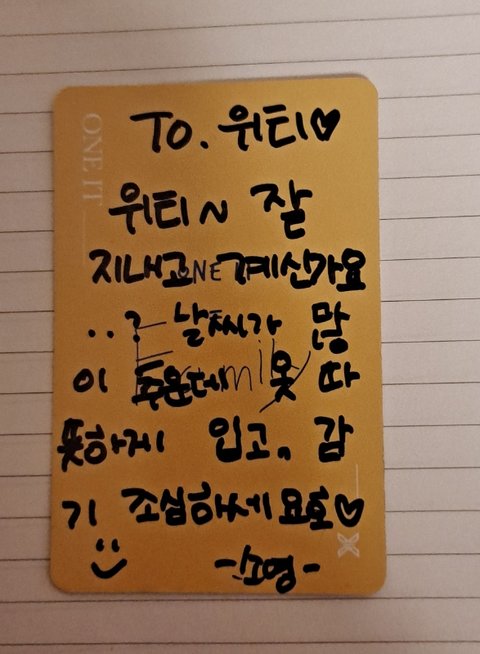 To. 위티♥
ONE IT
위티~ 잘
지내고 계신가요
..? 날씨가 많
이 추운데 옷 따
뜻하게 입고, 감
기 조심하세요호♥
-소영-